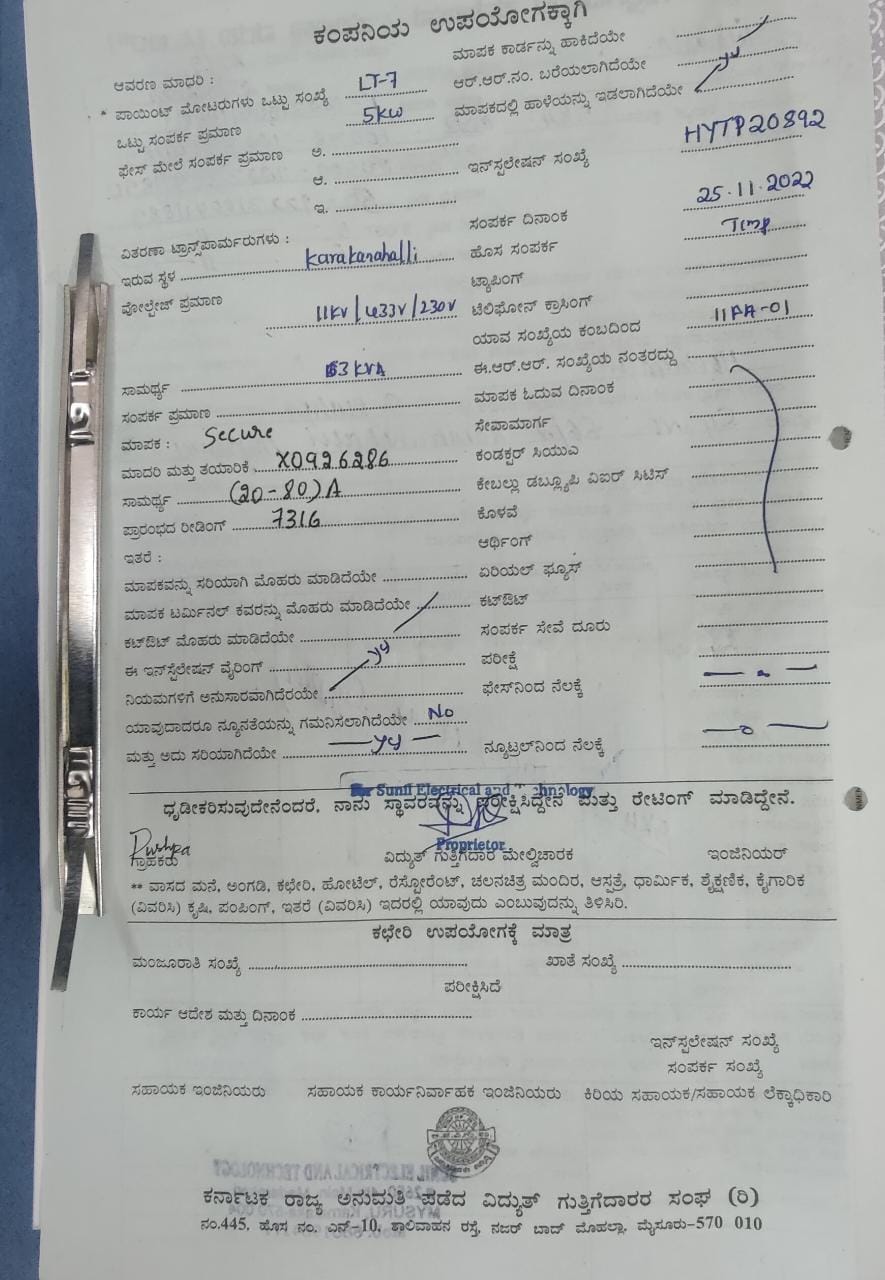 ಕಂಪನಿಯ ಉಪಯೋಗಕ್ಕಾಗಿ
ಆವರಣ ಮಾದರಿ :
* ಪಾಯಿಂಟ್ ಮೋಟರುಗಳು ಒಟ್ಟು ಸಂಖ್ಯೆ LT-7
ಒಟ್ಟು ಸಂಪರ್ಕ ಪ್ರಮಾಣ 5kw
ಫೇಸ್ ಮೇಲೆ ಸಂಪರ್ಕ ಪ್ರಮಾಣ ಅ.
ಆ.
ಇ.
ವಿತರಣಾ ಟ್ರಾನ್ಸ್‌ಪಾರ್ಮರುಗಳು :
ಇರುವ ಸ್ಥಳ Karakanahalli
ವೋಲ್ಟೇಜ್ ಪ್ರಮಾಣ 11KV/433V/230V
ಸಾಮರ್ಥ್ಯ 63 KVA
ಸಂಪರ್ಕ ಪ್ರಮಾಣ
ಮಾಪಕ : Secure
ಮಾದರಿ ಮತ್ತು ತಯಾರಿಕೆ X0926286
ಸಾಮರ್ಥ್ಯ (20-80)A
ಪ್ರಾರಂಭದ ರೀಡಿಂಗ್ 7316
ಇತರೆ :
ಮಾಪಕವನ್ನು ಸರಿಯಾಗಿ ಮೊಹರು ಮಾಡಿದೆಯೇ
ಮಾಪಕ ಟರ್ಮಿನಲ್ ಕವರನ್ನು ಮೊಹರು ಮಾಡಿದೆಯೇ
ಕಟ್‌ಔಟ್ ಮೊಹರು ಮಾಡಿದೆಯೇ
ಈ ಇನ್‌ಸ್ಟಲೇಷನ್ ವೈರಿಂಗ್
ನಿಯಮಗಳಿಗೆ ಅನುಸಾರವಾಗಿದೆರಯೇ
ಯಾವುದಾದರೂ ನ್ಯೂನತೆಯನ್ನು ಗಮನಿಸಲಾಗಿದೆಯೇ No
ಮತ್ತು ಅದು ಸರಿಯಾಗಿದೆಯೇ
ಮಾಪಕ ಕಾರ್ಡನ್ನು ಹಾಕಿದೆಯೇ
ಆರ್.ಆರ್.ನಂ. ಬರೆಯಲಾಗಿದೆಯೇ
ಮಾಪಕದಲ್ಲಿ ಹಾಳೆಯನ್ನು ಇಡಲಾಗಿದೆಯೇ
ಇನ್‌ಸ್ಟಲೇಷನ್ ಸಂಖ್ಯೆ HYTP20892
ಸಂಪರ್ಕ ದಿನಾಂಕ 25.11.2022
ಹೊಸ ಸಂಪರ್ಕ Temp
ಟ್ಯಾಪಿಂಗ್
ಟೆಲಿಫೋನ್ ಕ್ರಾಸಿಂಗ್
ಯಾವ ಸಂಖ್ಯೆಯ ಕಂಬದಿಂದ 11AA-01
ಈ.ಆರ್.ಆರ್. ಸಂಖ್ಯೆಯ ನಂತರದ್ದು
ಮಾಪಕ ಓದುವ ದಿನಾಂಕ
ಸೇವಾಮಾರ್ಗ
ಕಂಡಕ್ಟರ್ ಸಿಯುಎ
ಕೇಬಲ್ಲು ಡಬ್ಲ್ಯೂಪಿ ವಿಐಆರ್ ಸಿಟಿಸ್
ಕೊಳವೆ
ಆರ್ಥಿಂಗ್
ಏರಿಯಲ್ ಫ್ಯೂಸ್
ಕಟ್‌ಔಟ್
ಸಂಪರ್ಕ ಸೇವೆ ದೂರು
ಪರೀಕ್ಷೆ
ಫೇಸ್‌ನಿಂದ ನೆಲಕ್ಕೆ
ನ್ಯೂಟ್ರಲ್‌ನಿಂದ ನೆಲಕ್ಕೆ
For Sunil Electrical and Technology
ಧೃಡೀಕರಿಸುವುದೇನೆಂದರೆ, ನಾನು ಸ್ಥಾವರವನ್ನು ಪರೀಕ್ಷಿಸಿದ್ದೇನೆ ಮತ್ತು ರೇಟಿಂಗ್ ಮಾಡಿದ್ದೇನೆ.
Pushpa
Proprietor
ಗ್ರಾಹಕರು ವಿದ್ಯುತ್ ಗುತ್ತಿಗೆದಾರ ಮೇಲ್ವಿಚಾರಕ ಇಂಜಿನಿಯರ್
** ವಾಸದ ಮನೆ, ಅಂಗಡಿ, ಕಛೇರಿ, ಹೋಟೆಲ್, ರೆಸ್ಟೋರೆಂಟ್, ಚಲನಚಿತ್ರ ಮಂದಿರ, ಆಸ್ಪತ್ರೆ, ಧಾರ್ಮಿಕ, ಶೈಕ್ಷಣಿಕ, ಕೈಗಾರಿಕ
(ವಿವರಿಸಿ) ಕೃಷಿ, ಪಂಪಿಂಗ್, ಇತರೆ (ವಿವರಿಸಿ) ಇದರಲ್ಲಿ ಯಾವುದು ಎಂಬುವುದನ್ನು ತಿಳಿಸಿರಿ.
ಕಛೇರಿ ಉಪಯೋಗಕ್ಕೆ ಮಾತ್ರ
ಮಂಜೂರಾತಿ ಸಂಖ್ಯೆ ಖಾತೆ ಸಂಖ್ಯೆ
ಪರೀಕ್ಷಿಸಿದೆ
ಕಾರ್ಯ ಆದೇಶ ಮತ್ತು ದಿನಾಂಕ
ಇನ್‌ಸ್ಪಲೇಷನ್ ಸಂಖ್ಯೆ
ಸಂಪರ್ಕ ಸಂಖ್ಯೆ
ಸಹಾಯಕ ಇಂಜಿನಿಯರು ಸಹಾಯಕ ಕಾರ್ಯನಿರ್ವಾಹಕ ಇಂಜಿನಿಯರು ಕಿರಿಯ ಸಹಾಯಕ/ಸಹಾಯಕ ಲೆಕ್ಕಾಧಿಕಾರಿ
ಕರ್ನಾಟಕ ರಾಜ್ಯ ಅನುಮತಿ ಪಡೆದ ವಿದ್ಯುತ್ ಗುತ್ತಿಗೆದಾರರ ಸಂಘ (ರಿ)
ನಂ.445, ಹೊಸ ನಂ. ಎನ್-10, ಶಾಲಿವಾಹನ ರಸ್ತೆ, ನಜರ್ ಬಾದ್ ಮೊಹಲ್ಲಾ, ಮೈಸೂರು-570 010